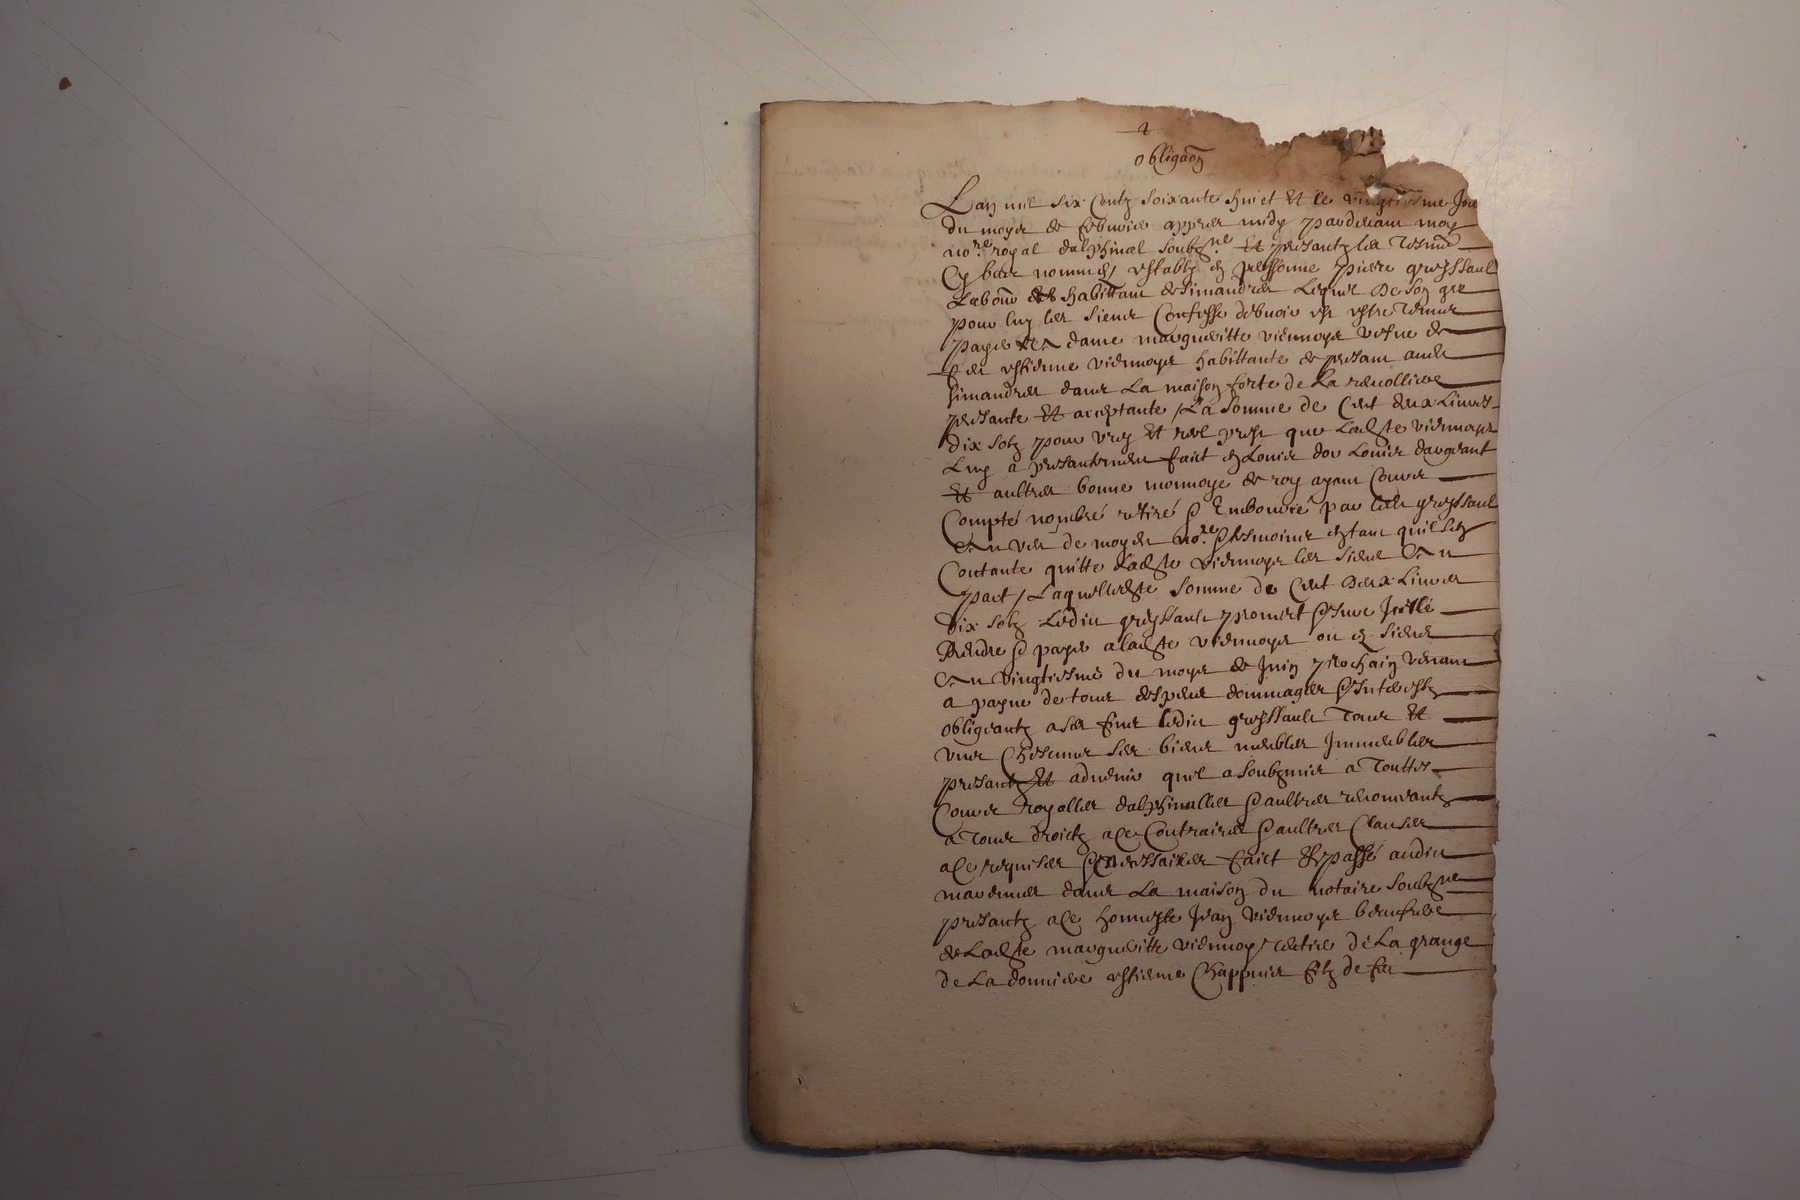 obligaon
Lan mil six centz soixante huict et le vingtiesme jou
du moys de febvrier appres midy pardevant moy
no.re royal dalphinal soubzne et presantz les tesmo
Cy bas nommes estably en personne pierre greyssaul
Labour habittant de simandres Lequel de son gre
pour luy les siens Confesse debvoir et estre tenu
payer a dame margueritte viennoys vefve de
feu estienne viennoys habittante de presant aud
simandres dans La maison forte de La
presante et acceptante / La somme de Cent deux Livres
dix solz pour vray et reel prest que ladte viennoys
Luy a presantement faict en Louis dor Louis dargeant
et aultres bonne monnoye de roy ayant Cours
Compté nombré retiré & Emboursé par led greyssaul
au veu de moyd no.re & tesmoins entant quil sen
Contante quitte ladte viennoys les siens
pact / Laquelle dte somme de Cent deux Livres
dix solz Ledit greyssault promet
Rendre & payer a ladte viennoys ou es siens
au vingtiesme du moys de Juin prochain venant
a payne de tous despens dommages & Interestz
obligeantz a ses fins ledit greyssault tous et
uns Chescuns ses biens meubles Immeubles
presantz et advenir quil a soubzmis a Touttes
Cours royalles dalphinalles & aultres renonceantz
a Tous droictz a Ce Contraires & aultres Clauses
a Ce requises & necessaires faict & passé audit
marennes dans La maison du notaire soubzne
presantz a Ce honneste Jean Viennoys beaufrere
de Ladte margueritte viennoys de La grange
de La estienne Chappuis filz de feu